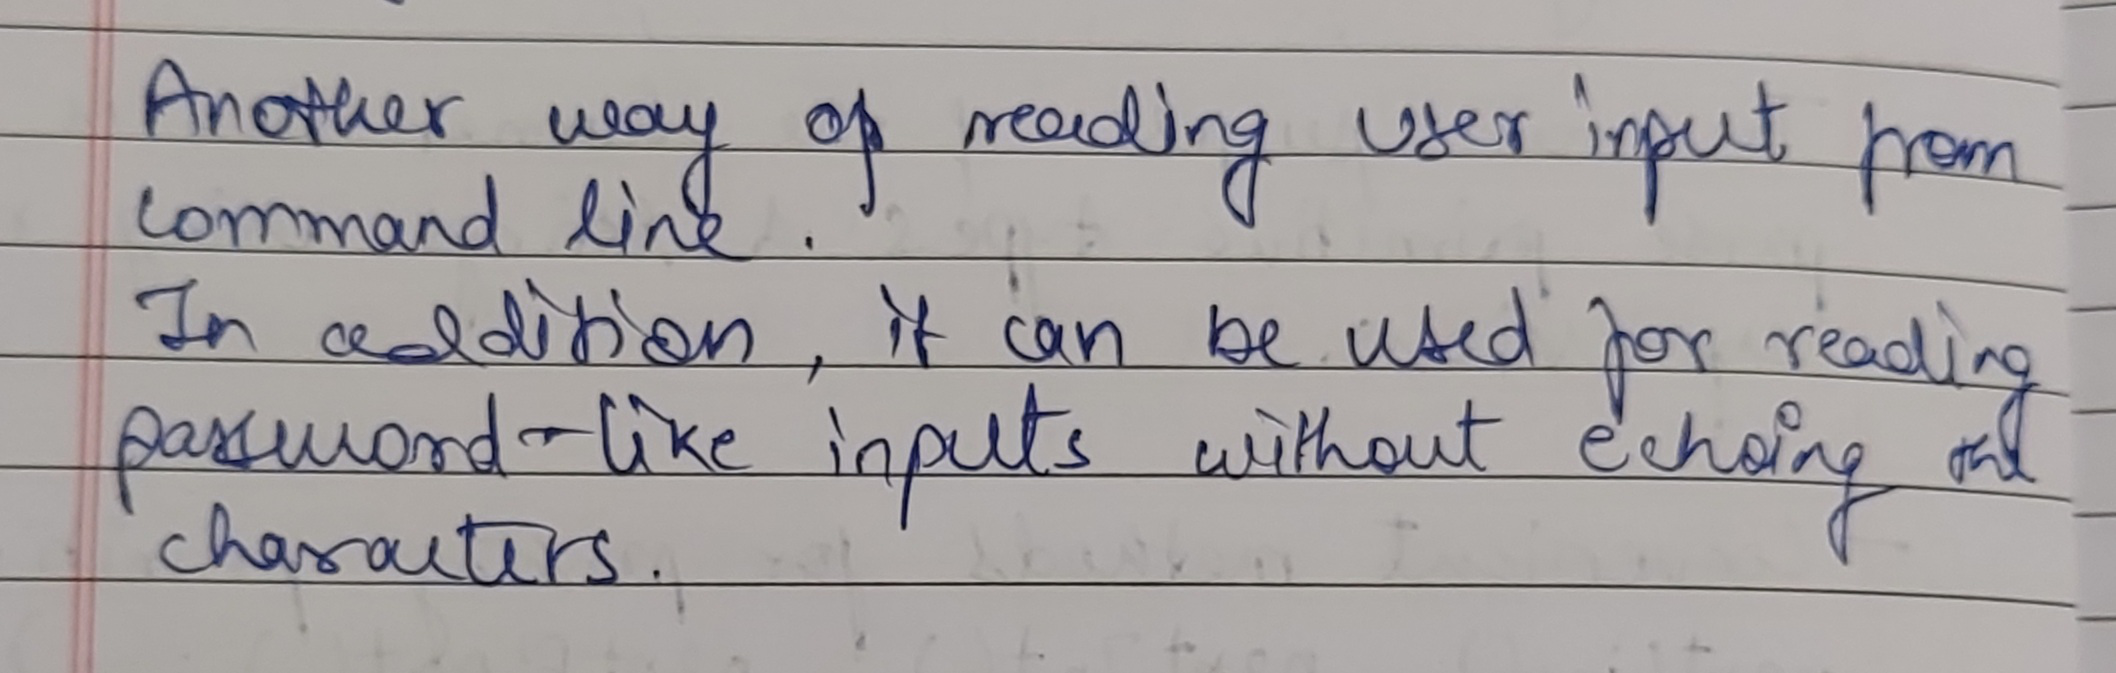 Another way of reading user input from
command line.
In addition, it can be used for reading
password-like inputs without echoing the
characters.